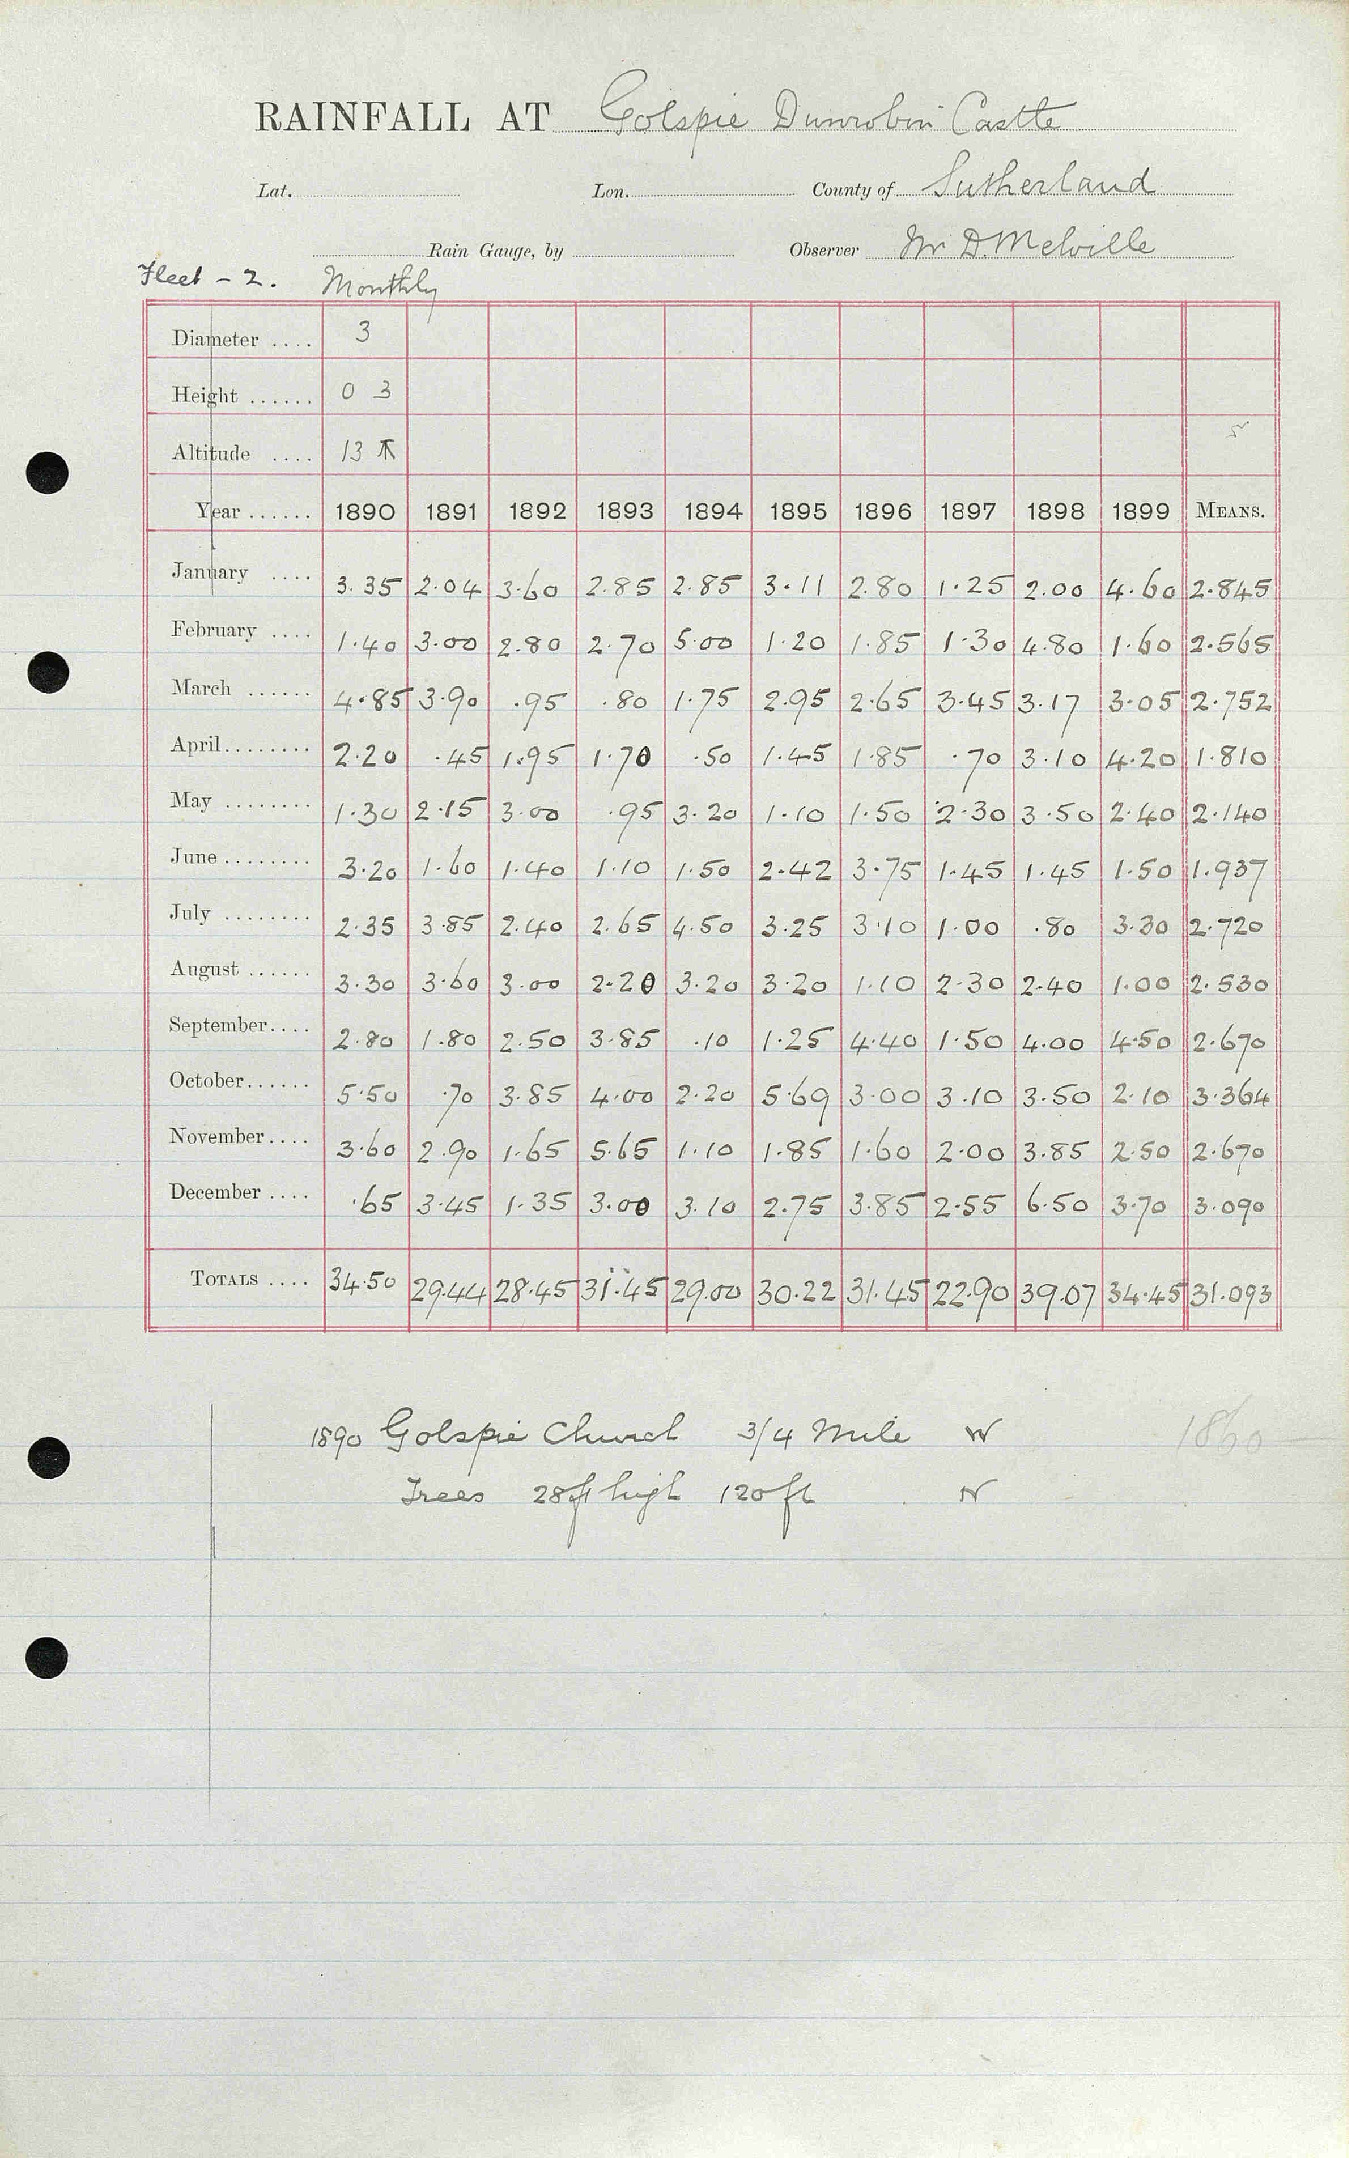 RAINFALL AT Golspie Dunrobin Castle
Lat. Lon. County of Sutherland
Rain Gauge, by Observer Mr D. Melville
Fleet - 2. Monthly
Diameter .... 3
Height ...... 0 3
Altitude .... 13
Year ...... 1890 1891 1892 1893 1894 1895 1896 1897 1898 1899 MEANS.
January .... 3.35 2.04 3.60 2.85 2.85 3.11 2.80 1.25 2.00 4.60 2.845
February .... 1.40 3.00 2.80 2.70 5.00 1.20 1.85 1.30 4.80 1.60 2.565
March ...... 4.85 3.90 .95 .80 1.75 2.95 2.65 3.45 3.17 3.05 2.752
April ........ 2.20 .45 1.95 1.70 .50 1.45 1.85 .70 3.10 4.20 1.810
May ........ 1.30 2.15 3.00 .95 3.20 1.10 1.50 2.30 3.50 2.40 2.140
June ........ 3.20 1.60 1.40 1.10 1.50 2.42 3.75 1.45 1.45 1.50 1.937
July ........ 2.35 3.85 2.40 2.65 4.50 3.25 3.10 1.00 .80 3.30 2.720
August ...... 3.30 3.60 3.00 2.20 3.20 3.20 1.10 2.30 2.40 1.00 2.530
September .... 2.80 1.80 2.50 3.85 .10 1.25 4.40 1.50 4.00 4.50 2.670
October ...... 5.50 .70 3.85 4.00 2.20 5.69 3.00 3.10 3.50 2.10 3.364
November .... 3.60 2.90 1.65 5.65 1.10 1.85 1.60 2.00 3.85 2.50 2.670
December .... .65 3.45 1.35 3.00 3.10 2.75 3.85 2.55 6.50 3.70 3.090
TOTALS .... 34.50 29.44 28.45 31.45 29.00 30.22 31.45 22.90 39.07 34.45 31.093
1890 Golspie Church 3/4 Mile W 1860
Trees 28ft high 120ft N